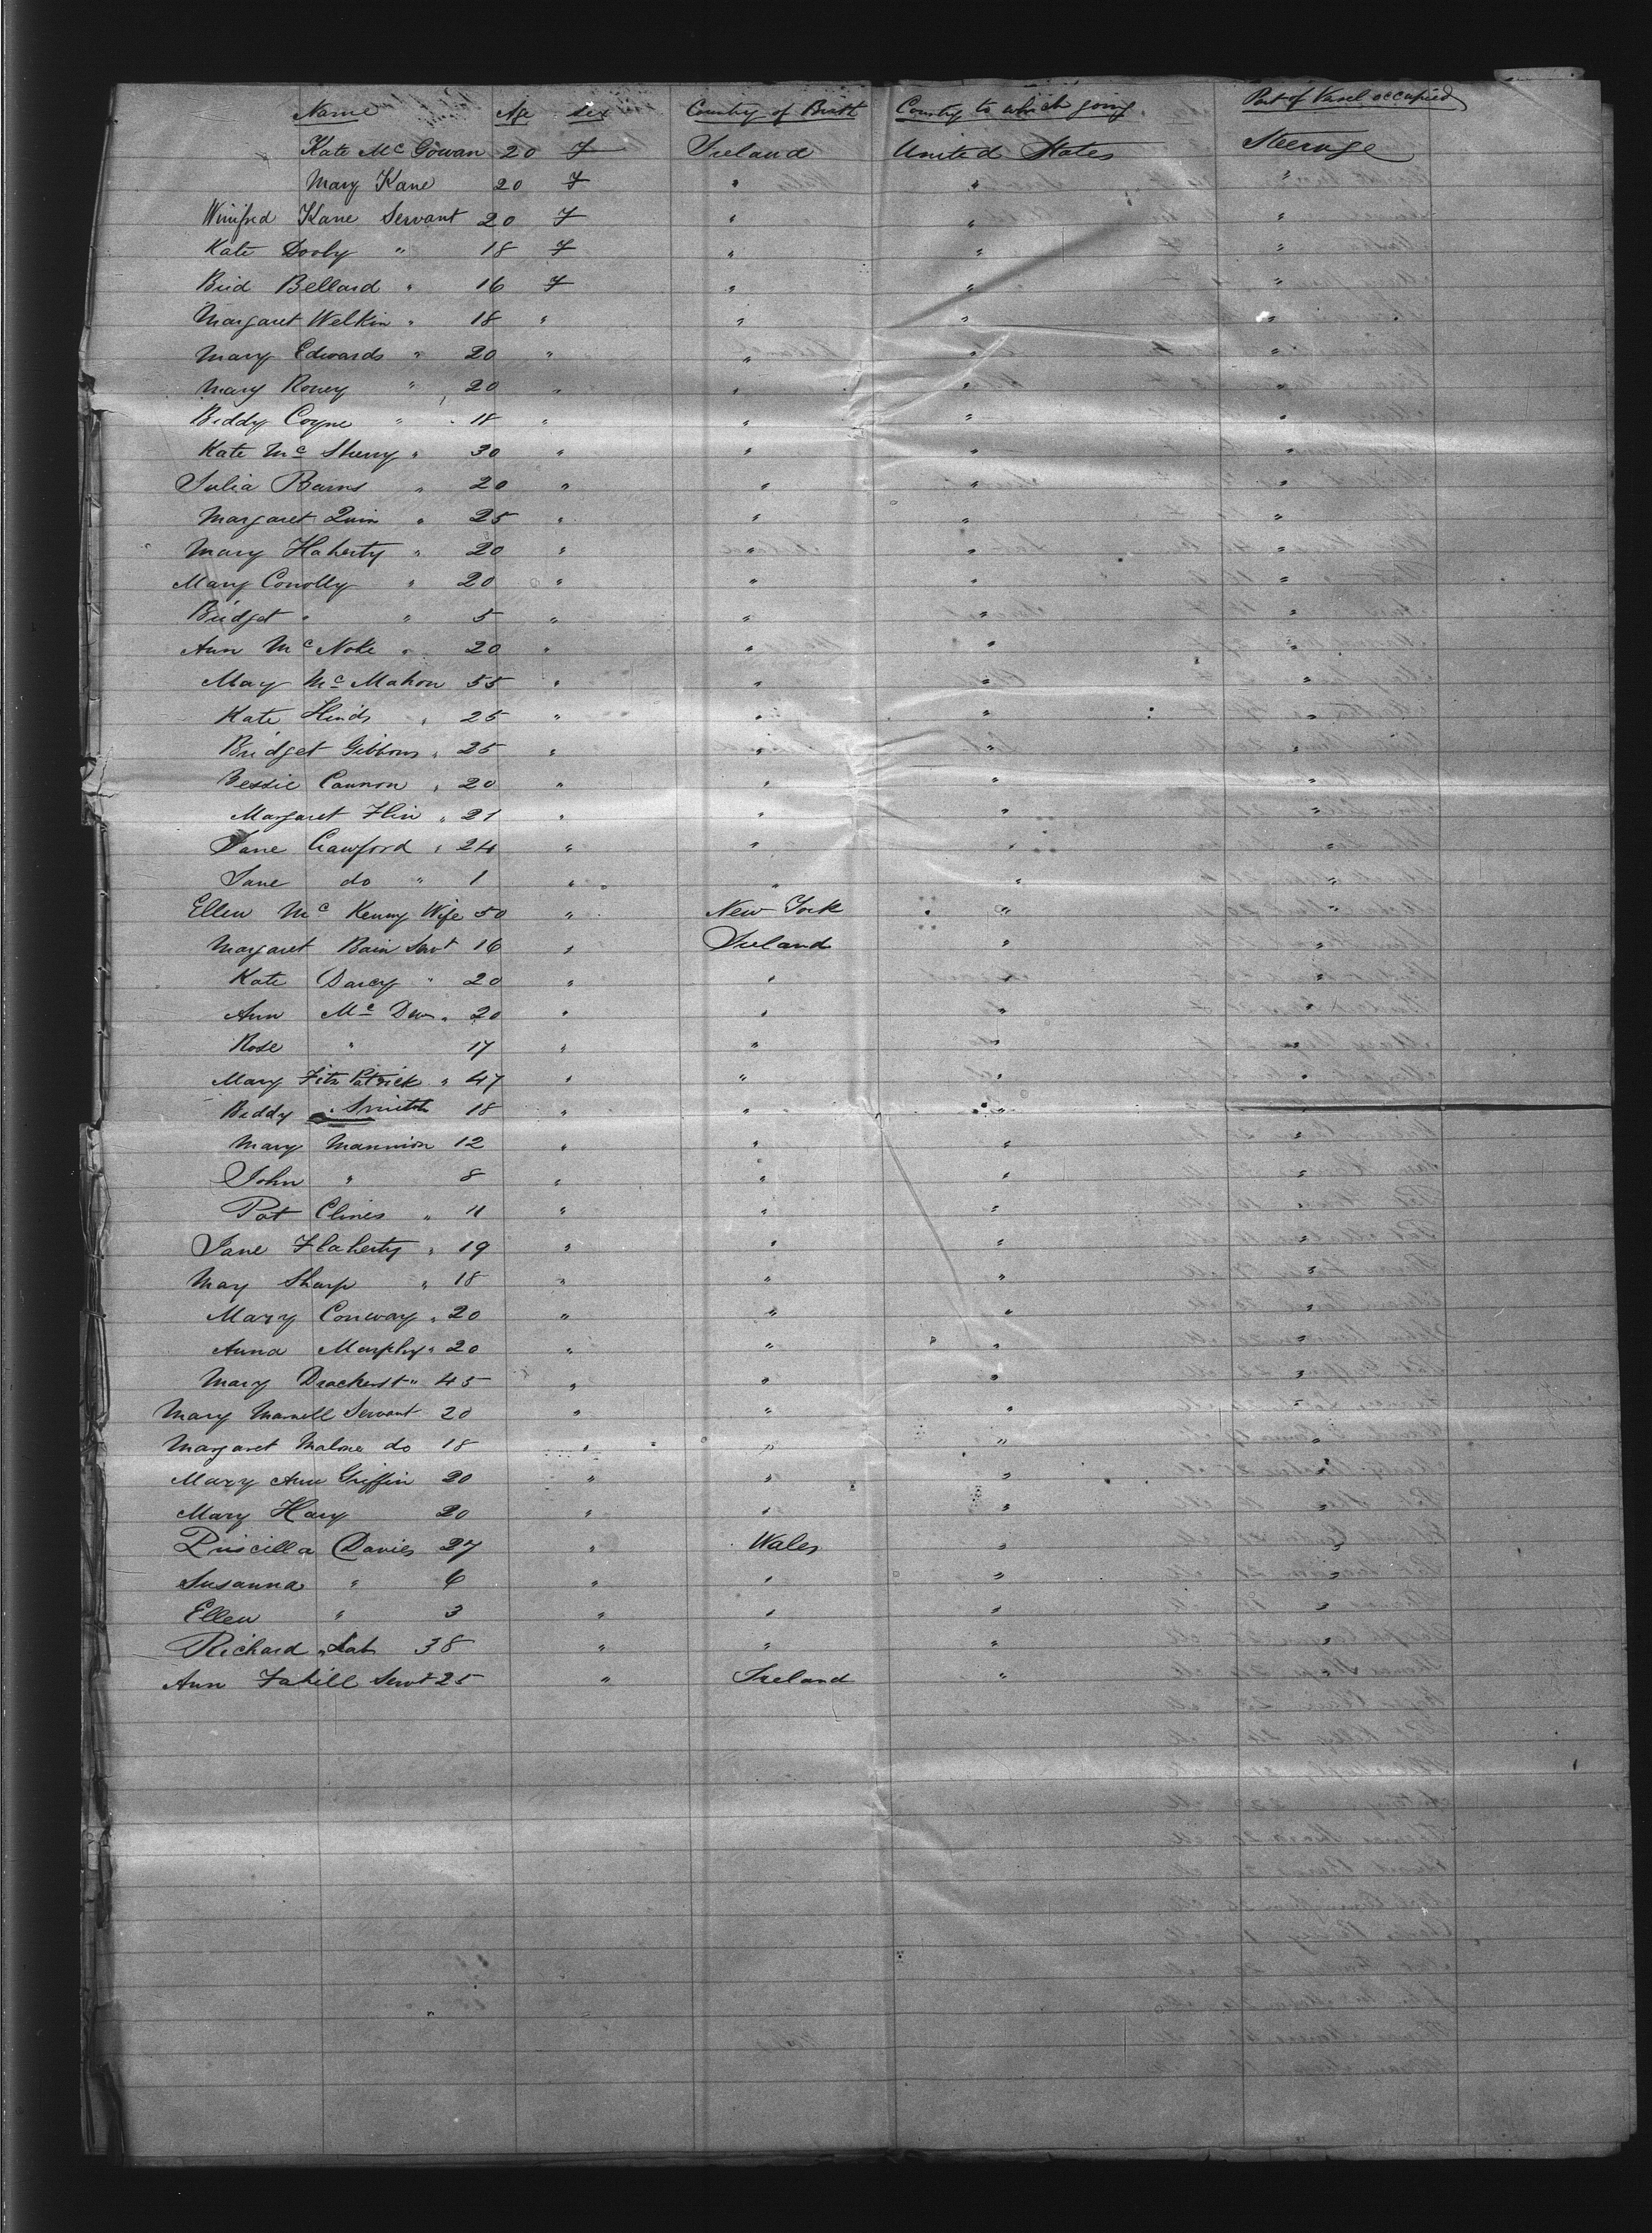 Name Age Sex Country of Birth Country to which going Part of Vessel occupied
Kate Mc Gowan 20 F Ireland United States Steerage
Mary Kane 20 F " " "
Winifred Kane Servant 20 F " " "
Kate Dooly " 18 F " " "
Brid Bellard " 16 F " " "
Margaret Welkin " 18 " " " "
Mary Edwards " 20 " " " "
Mary Roney " 20 " " " "
Biddy Coyne " 18 " " " "
Kate Mc Sherry " 30 " " " "
Julia Barns " 20 " " " "
Margaret Quin " 25 " " " "
Mary Flaherty " 20 " " " "
Mary Conolly " 20 " " " "
Bridget " " 5 " " " "
Ann Mc Noke " 20 " " " "
May Mc Mahon 55 " " " "
Kate Hinds " 25 " " " "
Bridget Gibbons " 25 " " " "
Bessie Cannon " 20 " " " "
Margaret Flin " 21 " " " "
Jane Crawford " 24 " " " "
Jane do " 1 " " " "
Ellen Mc Kenny Wife 50 " New York " "
Margaret Bain Servt 16 " Ireland " "
Kate Darcy " 20 " " " "
Ann Mc Dew " 20 " " " "
Rose " 17 " " " "
Mary Fitz Patrick " 47 " " " "
Biddy Smith 18 " " " "
Mary Mannion 12 " " " "
John " 8 " " " "
Pat Clines " 11 " " " "
Jane Flaherty " 19 " " " "
May Sharp " 18 " " " "
Mary Conway " 20 " " " "
Anna Murphy " 20 " " " "
Mary " 45 " " " "
Mary Servant 20 " " " "
Margaret Malone do 18 " " " "
Mary Ann Griffin 20 " " " "
Mary Hary 20 " " " "
Priscilla Davies 27 " Wales " "
Susanna " 6 " " " "
Ellen " 3 " " " "
Richard " Lab 38 " " " "
Ann Fahill Servt 25 " Ireland "